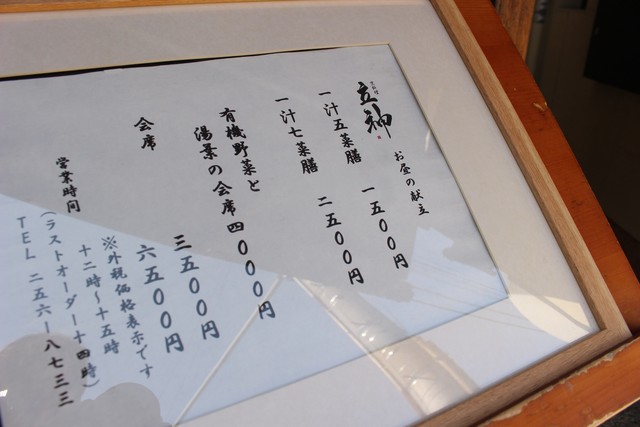 立神
お昼の献立
一汁五菜膳 一五００円
一汁七菜膳 二五００円
有機野菜と
湯景の会席 四０００円
会席 三五００円
六五００円
※外税価格表示です
営業時間 十二時〜十五時
(ラストオーダー十四時)
TEL 二五六ー八七三三